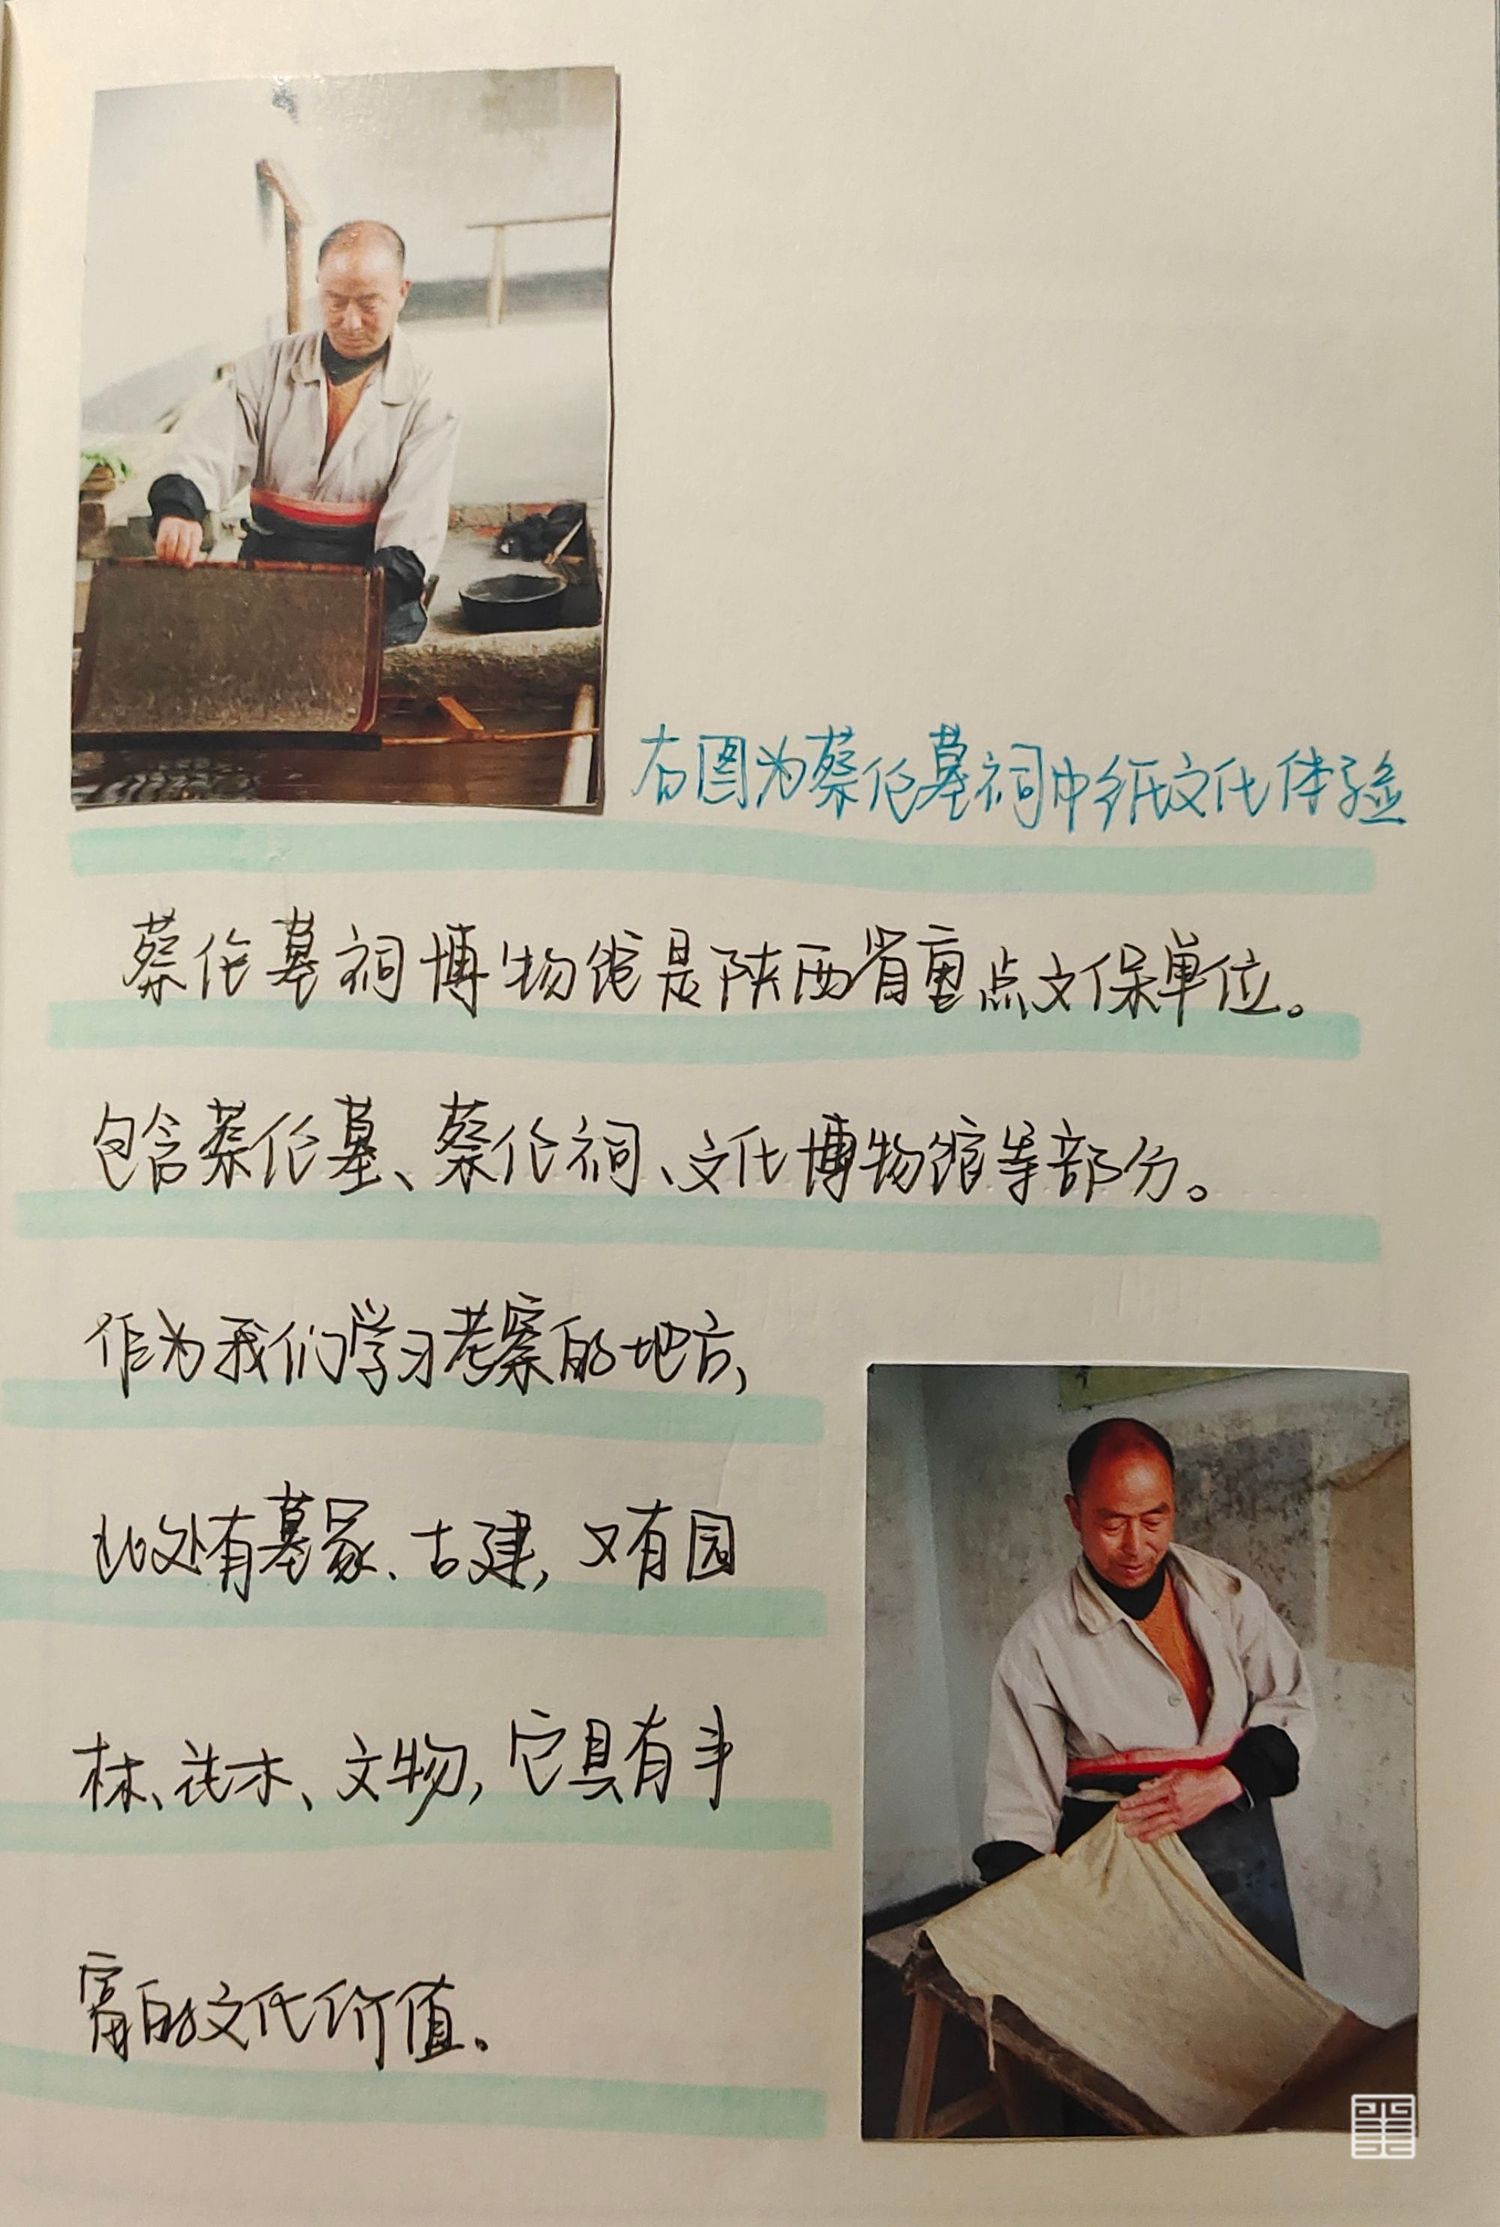 右图为蔡伦墓祠中纸文化体验
蔡伦墓祠博物馆是陕西省重点文保单位。
包含蔡伦墓、蔡伦祠、文化博物馆等部分。
作为我们学习考察的地方,
此处有墓冢、古建,又有园
林、花木、文物,它具有丰
富的文化价值.